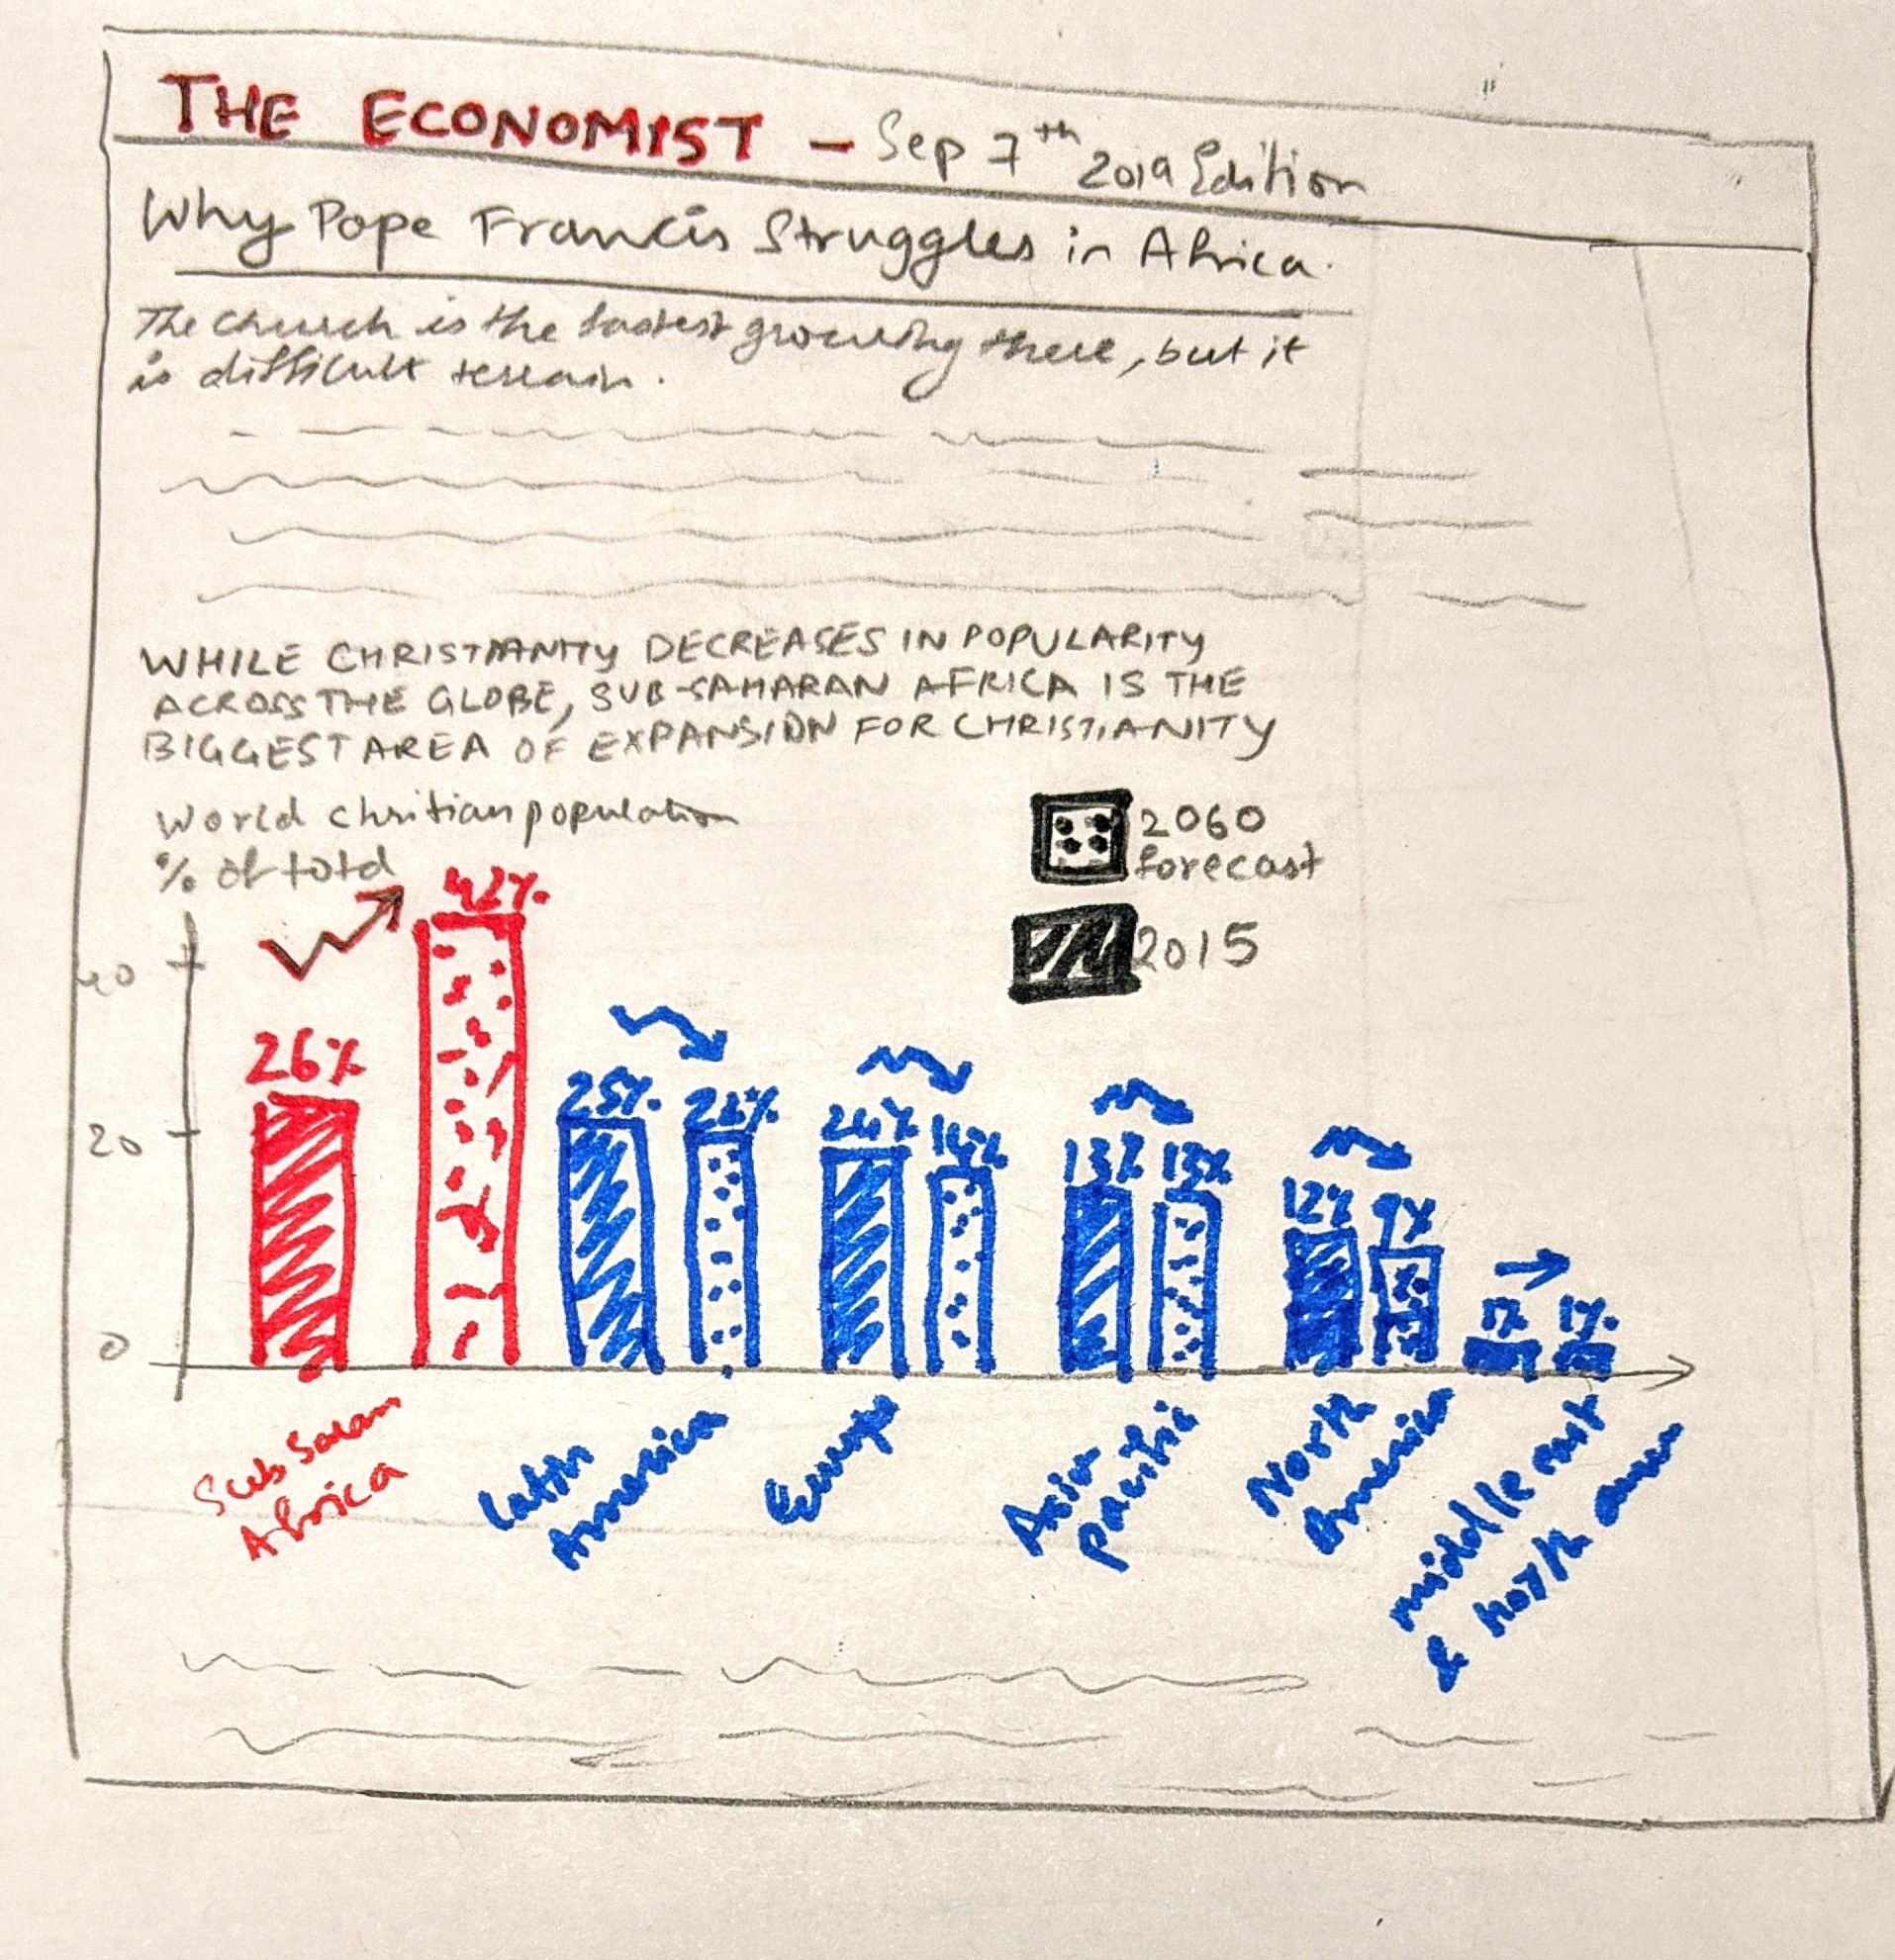 THE ECONOMIST - Sep 7th 2019 Edition
Why Pope Francis Struggles in Africa.
The church is the fastest growing there, but it
is difficult terrain.
WHILE CHRISTIANITY DECREASES IN POPULARITY
ACROSS THE GLOBE, SUB-SAHARAN AFRICA IS THE
BIGGEST AREA OF EXPANSION FOR CHRISTIANITY
World chritian population
% of total
2060
forecast
2015
40
20
0
26%
42%
25%
22%
24%
14%
13%
13%
12%
9%
1%
1%
Sub Saran
Africa
Latin
America
Europe
Asia
pacific
North
America
middle east
& north